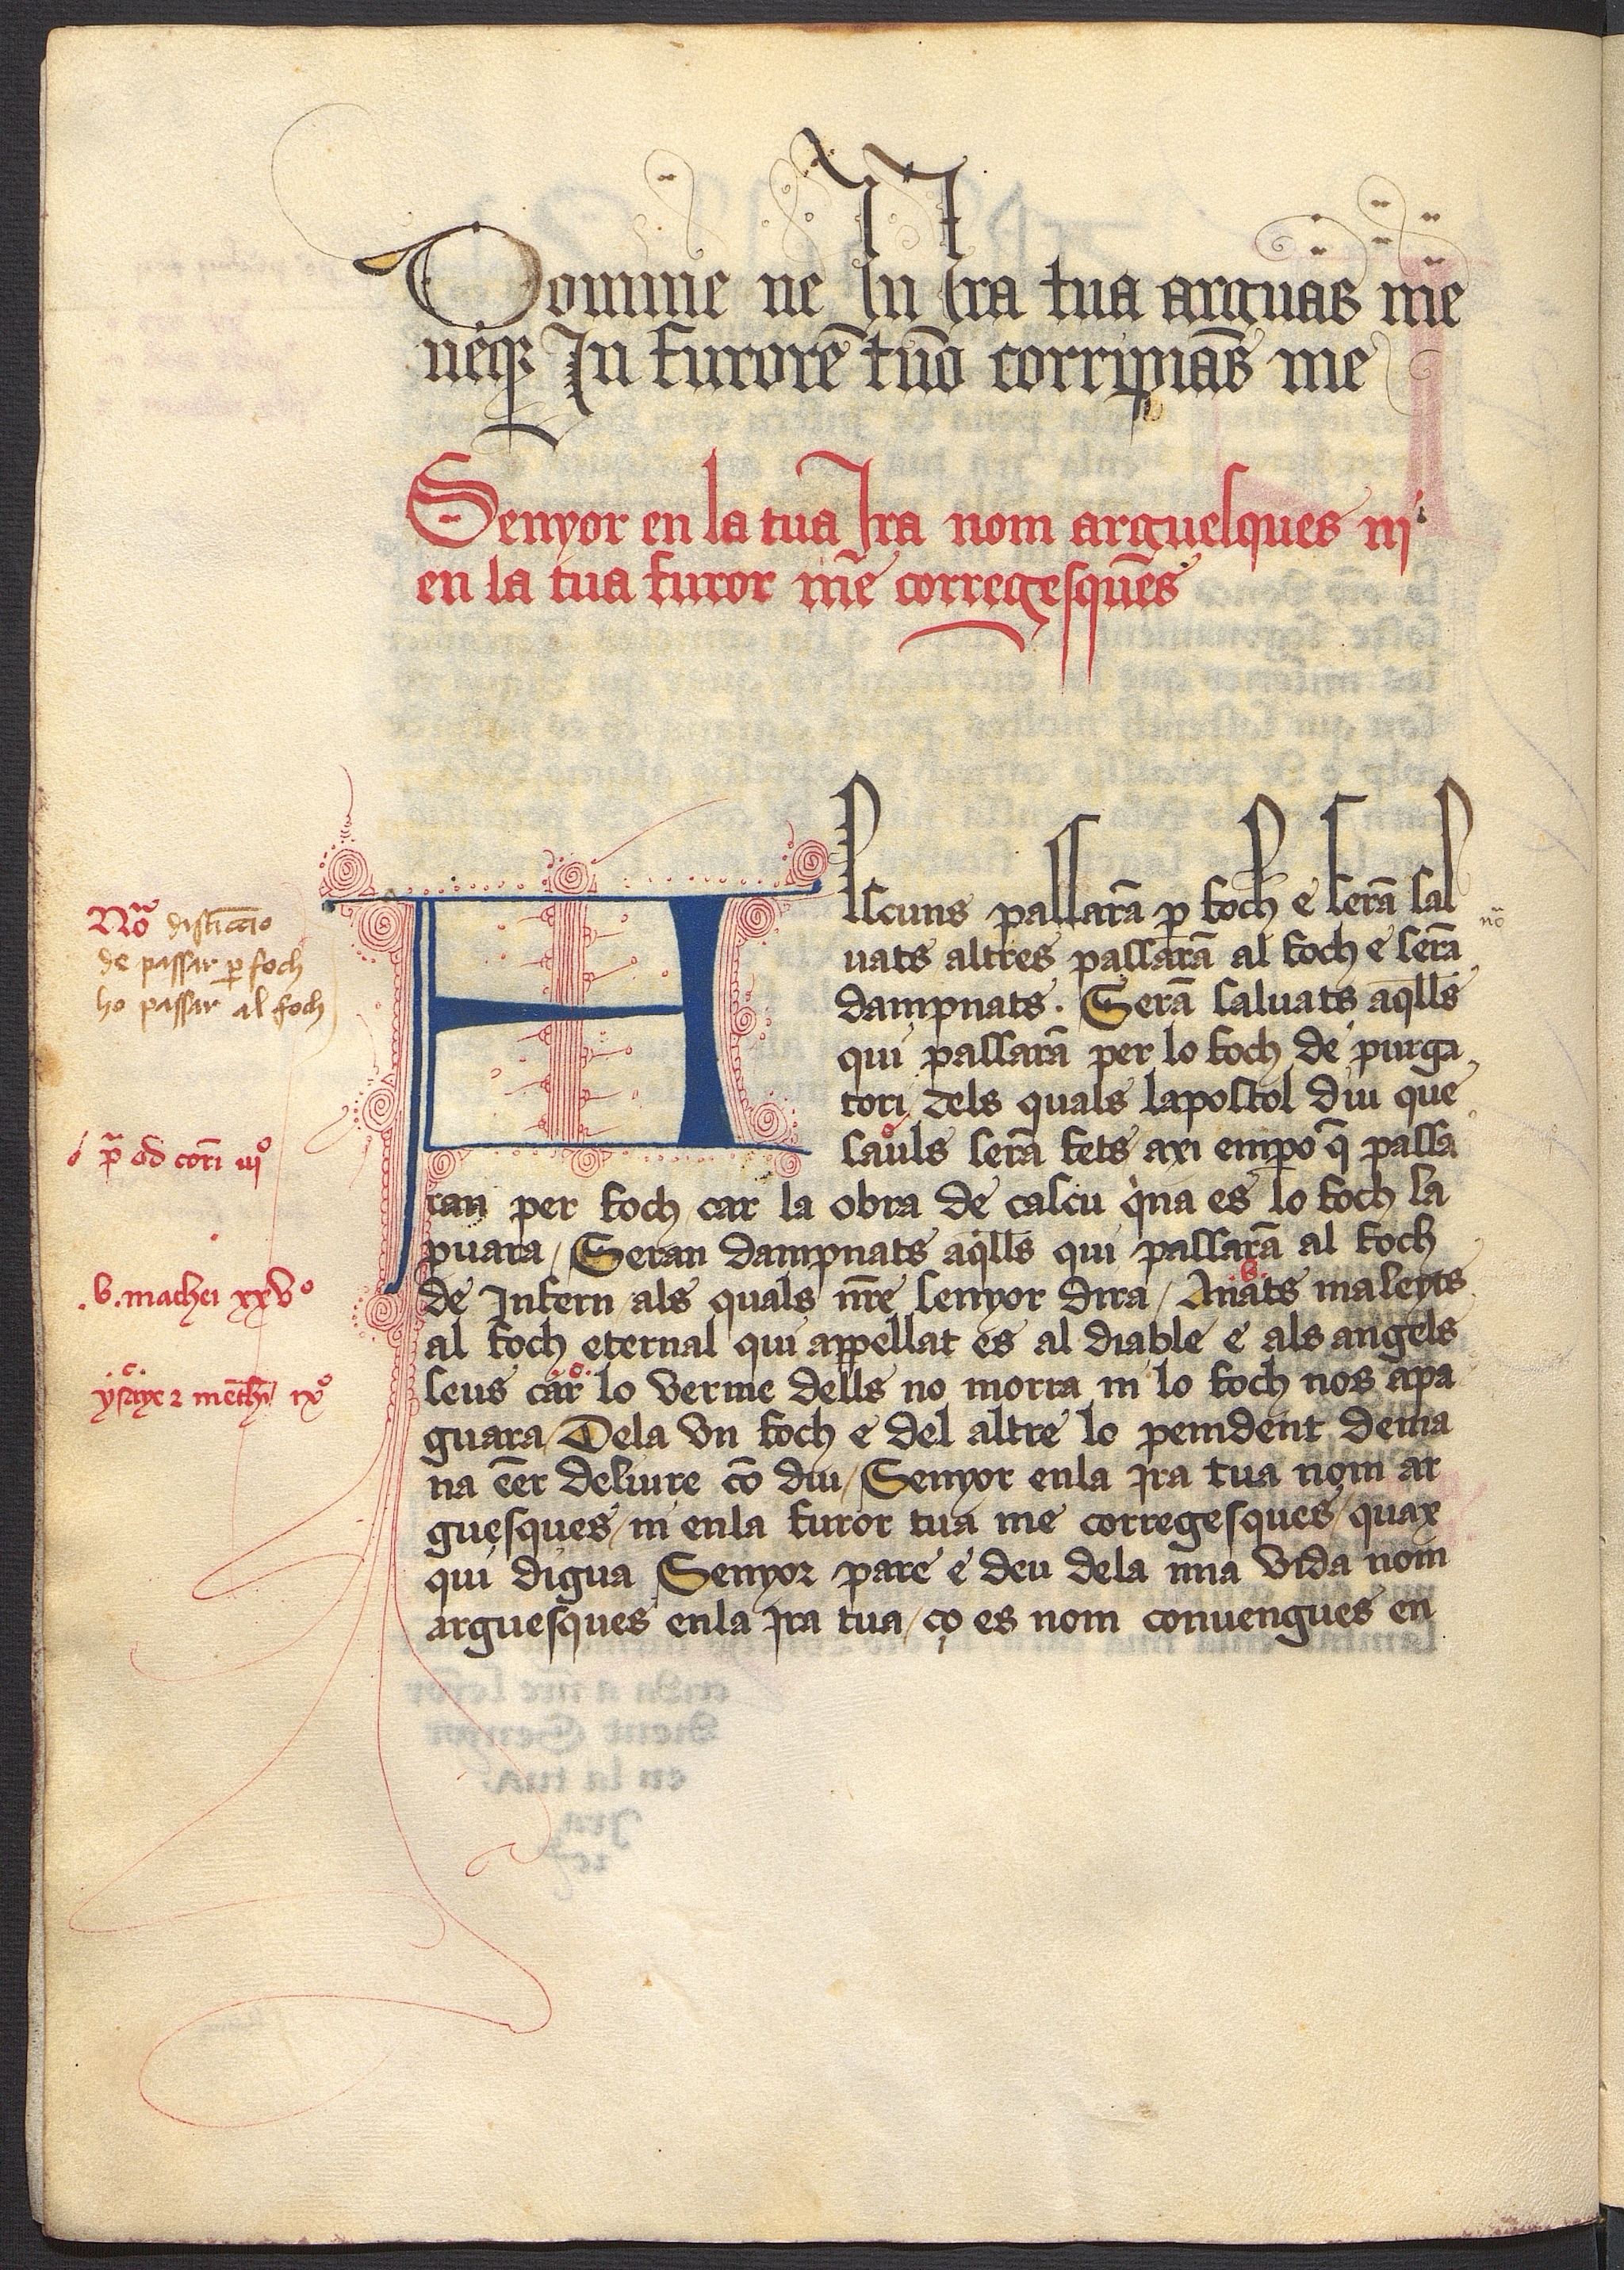 Domine ne In Ira tua arguas me
neqꝫ In furorē tuō corripias me
Senyor en la tua Ira nom arguesques ni
en la tua furor me corregesques
Alscuns passarā ꝑ foch e serā sal
uats altres passarā al foch e serā
dampnats. Serā saluats aq̄lls
qui passarā per lo foch de purga
tori dels quals lapostol diu que
sauls serā fets axi empo q̄ passa
ran per foch car la obra de cascu q̄na es lo foch la
puara / Seran dampnats aq̄lls qui passarā al foch
de Infern / als quals nr̄e senyor dira / Anats maleyts
.b.
al foch eternal qui appellat es al diable e als angels
seus car lo verme dells no morra ni lo foch nos apa
.c.
guara / Dela vn foch e del altre lo penident dema
na eēr desliure cō diu / Senyor enla ira tua nom ar
guesques / ni enla furor tua me corregesques / quax
qui digua Senyor pare e deu dela mia vida nom
arguesques enla ira tua / ço es nom convengues en
Nō distinctio
de passar ꝑ foch
ho passar al foch
nō
pª ad cori iiiº
.b. mathei xxvº
.c.